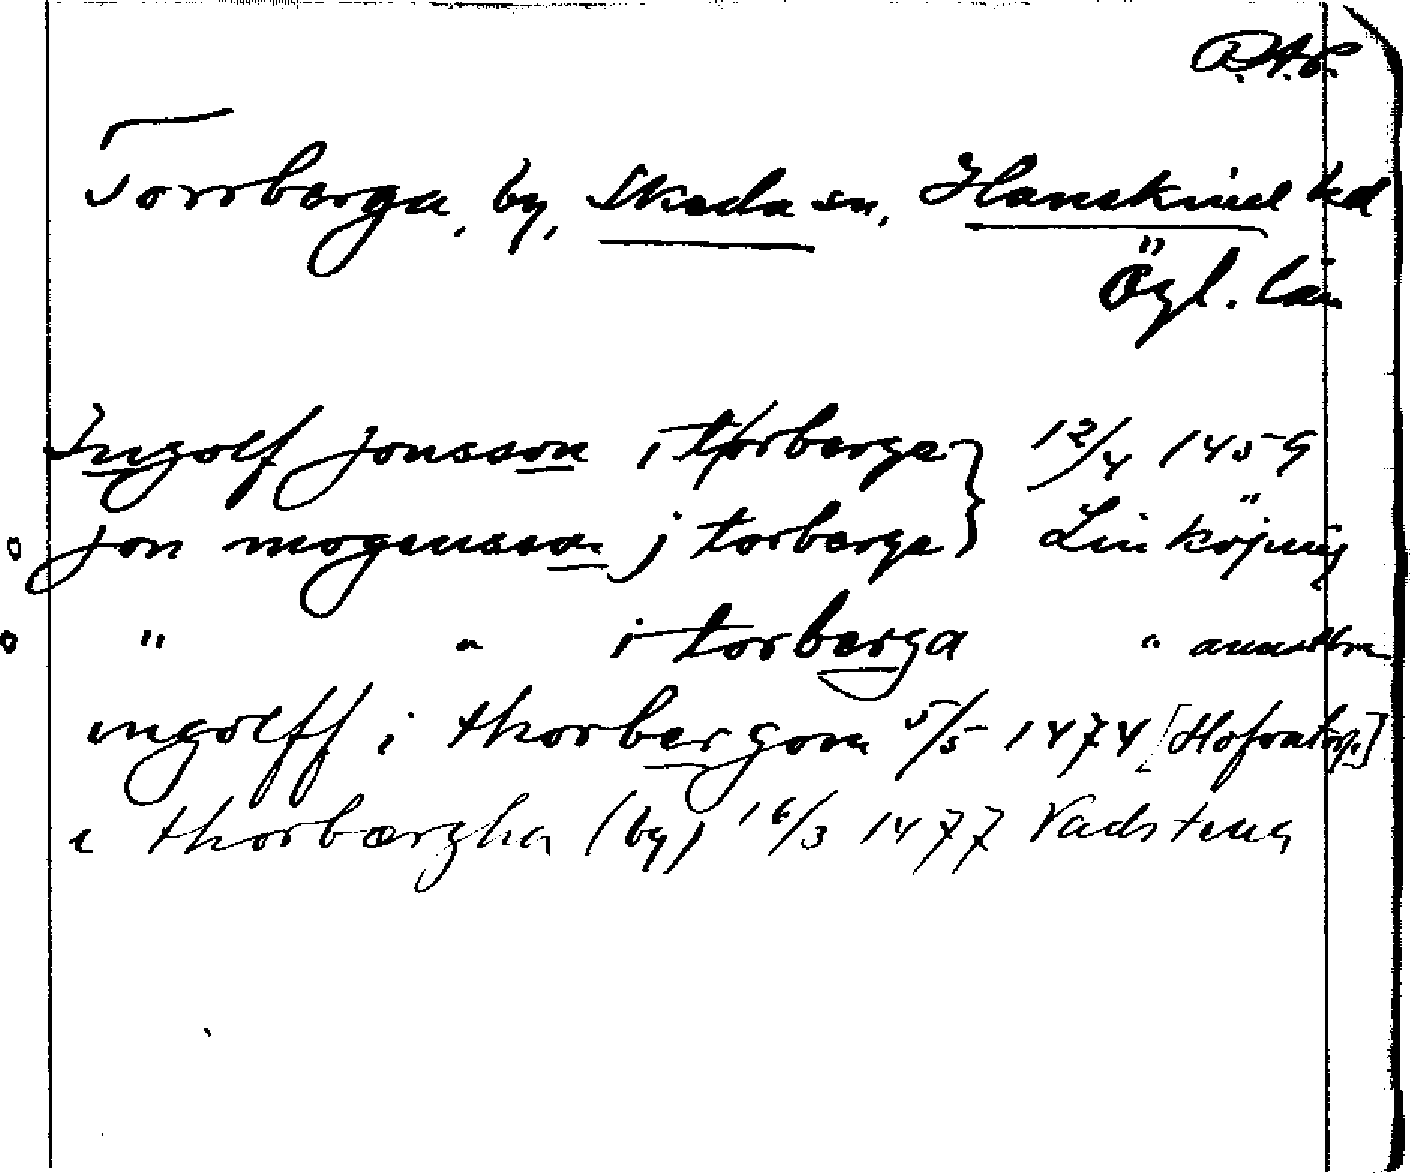 R.A.P.
Torrberga, by, Skeda sn, Hanekind hd
Ögl. län
Ingolf jonsson i torberge } 12/4 1459
jon mogensson j torberge } Linköping
" " i torberga "
ingolff i thorbergom 5/5 1474 [Hofvatorp]
i thorbærgha (by) 16/3 1477 Vadstena